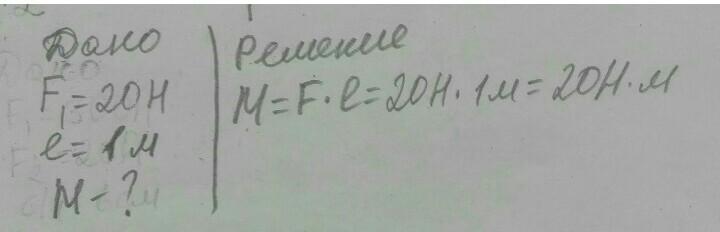 Дано
F₁ = 20Н
l = 1 м
M - ?
Решение
M = F · l = 20Н · 1м = 20Н · м